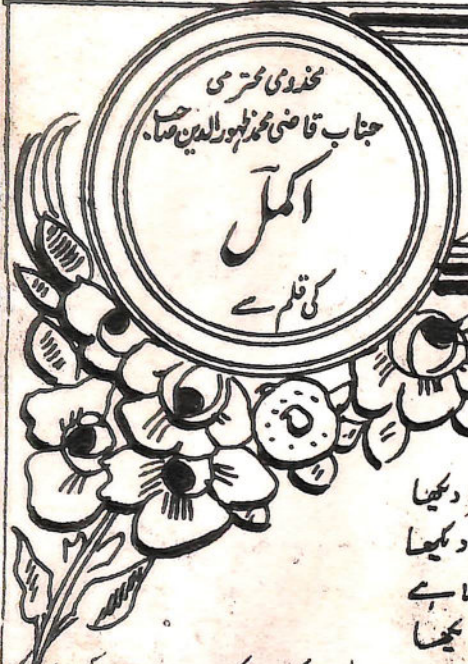 مخدومی محترمی
جناب قاضی محمد ظہور الدین صاحب
اکملؔ
کی قلم سے
دیکھا
دیکھا
ہے